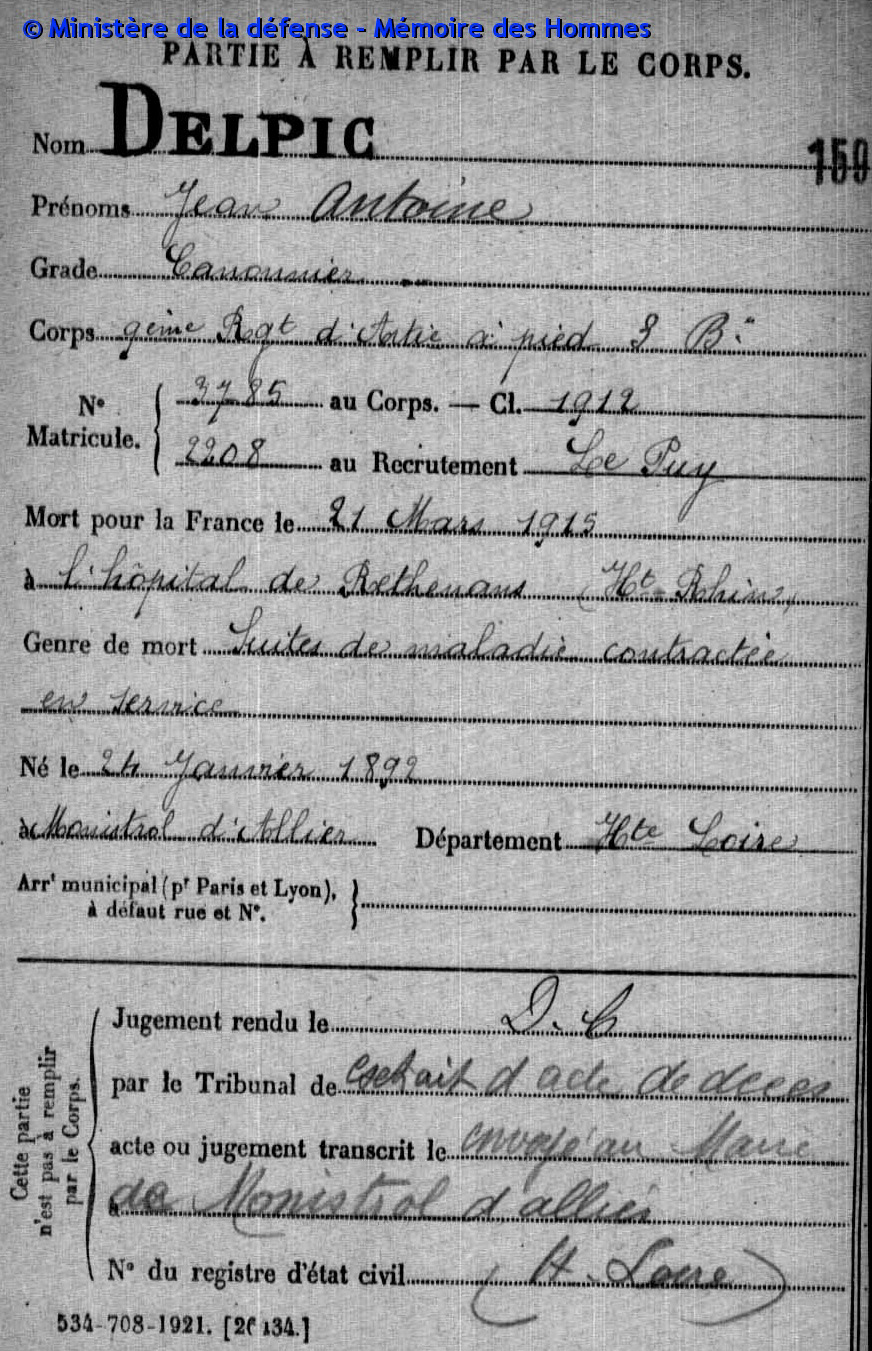 © Ministère de la défense - Mémoire des Hommes
PARTIE À REMPLIR PAR LE CORPS.
Nom DELPIC
159
Prénoms Jean Antoine
Grade Canonnier
Corps 9ème Rgt d'Artie à pied 8 Bie
N° Matricule. { 3785 au Corps. — Cl. 1912
2208 au Recrutement Le Puy
Mort pour la France le 21 Mars 1915
à l'hôpital de Rethenans (Ht-Rhin)
Genre de mort Suites de maladie contractée
en service
Né le 24 Janvier 1892
à Monistrol d'Allier Département Hte Loire
Arr' municipal (pr Paris et Lyon),
à défaut rue et N°.
Cette partie
n'est pas à remplir
par le Corps.
Jugement rendu le D. C
par le Tribunal de extrait d acte de deces
acte ou jugement transcrit le envoyé au Maire
à de Monistrol d'allier
N° du registre d'état civil (H. Loire)
534-708-1921. [26134.]